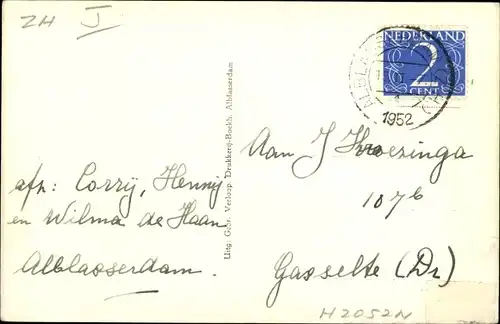 ZH I
NEDERLAND
2
CENT
1952
Uitg. Gebr. Verloop, Drukkerij-Boekh. Alblasserdam
afz: Corrÿ, Hennÿ
en Wilma de Haan
Alblasserdam.
Aan J Kroezinga
107b
Gasselte (Dr)
H2052N